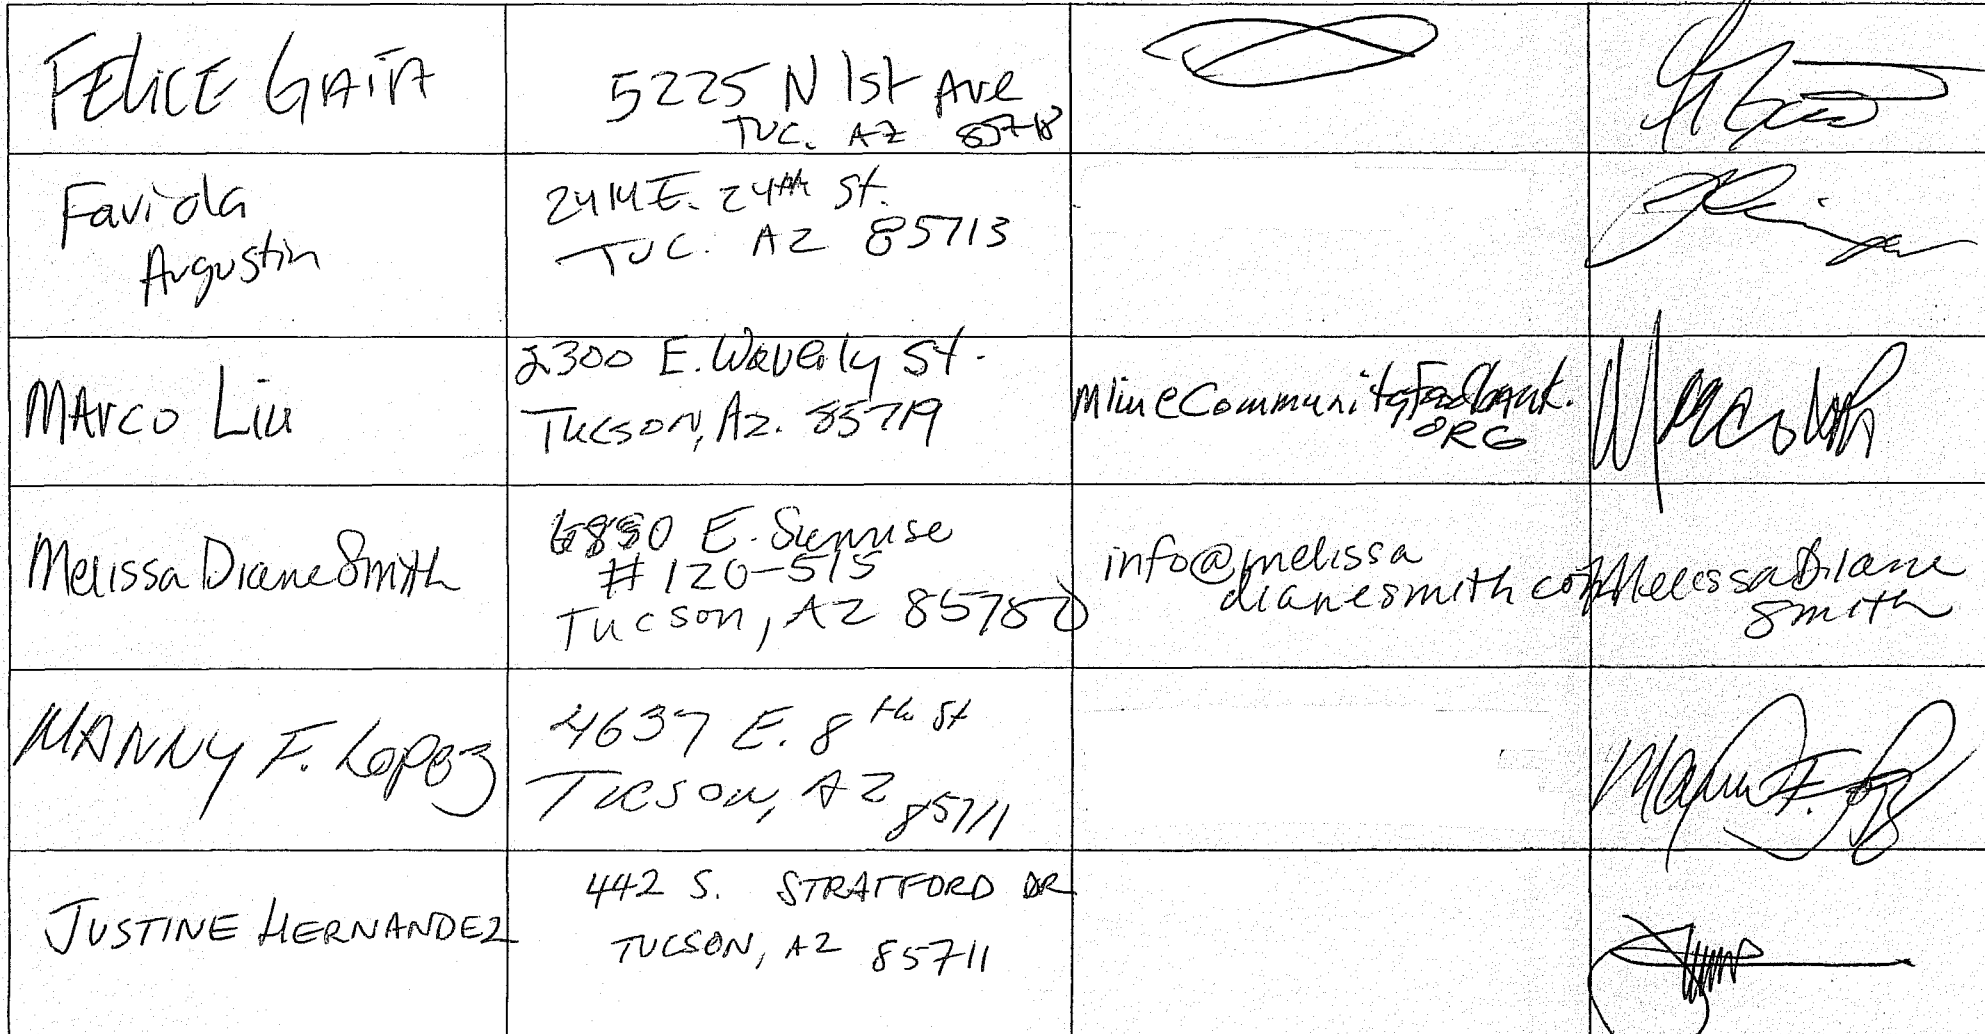 FELICE GAIA
5225 N 1st Ave
TUC. AZ 85718
Faviola
Augustin
2414 E. 24th St.
TUC. AZ 85713
MArco Liu
2300 E. Waverly St.
Tucson, Az. 85719
mliu@CommunityFoodbank.
ORG
Melissa Diane Smith
6890 E. Sunrise
# 120-515
Tucson, AZ 85750
info@melissa
dianesmith.com
Melissa Diane
Smith
MANNY F. Lopez
4637 E. 8th St
Tucson, AZ
85711
JUSTINE HERNANDEZ
442 S. STRATFORD DR
TUCSON, AZ 85711